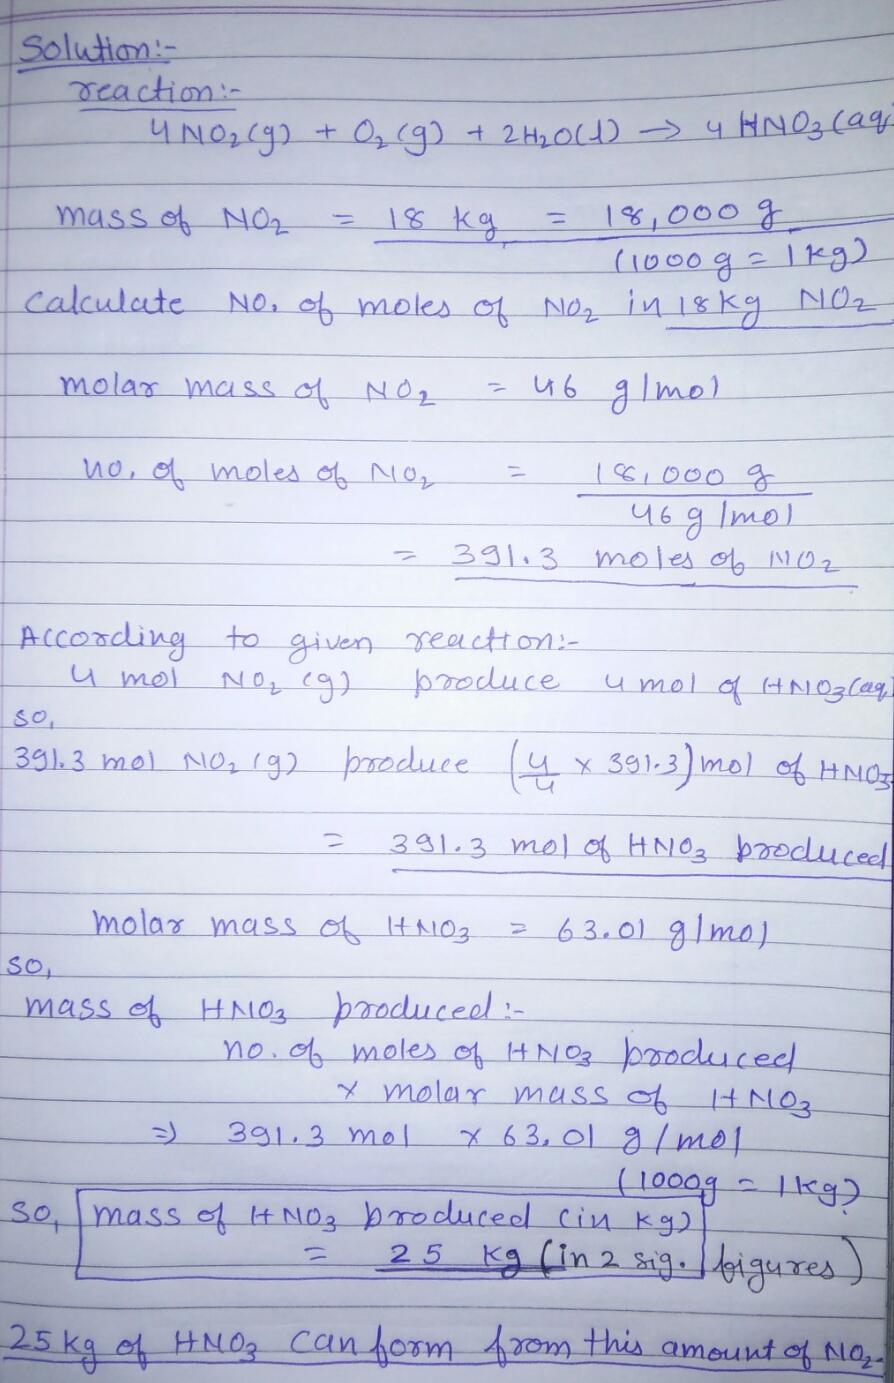 Solution:-
reaction:-
4NO₂(g) + O₂(g) + 2H₂O(l) → 4 HNO₃(aq
mass of NO₂ = 18 kg = 18,000 g
(1000 g = 1kg)
Calculate No. of moles of NO₂ in 18kg NO₂
molar mass of NO₂ = 46 g/mol
no. of moles of NO₂ = 18,000 g
46 g/mol
= 391.3 moles of NO₂
According to given reaction:-
4 mol NO₂(g) produce 4 mol of HNO₃(aq)
so,
391.3 mol NO₂(g) produce (4/4 x 391.3) mol of HNO₃
= 391.3 mol of HNO₃ produced
molar mass of HNO₃ = 63.01 g/mol
so,
mass of HNO₃ produced:-
no. of moles of HNO₃ produced
x molar mass of HNO₃
⇒ 391.3 mol x 63.01 g/mol
(1000g = 1kg)
so, mass of HNO₃ produced (in kg)
= 25 kg (in 2 sig. figures)
25kg of HNO₃ can form from this amount of NO₂.